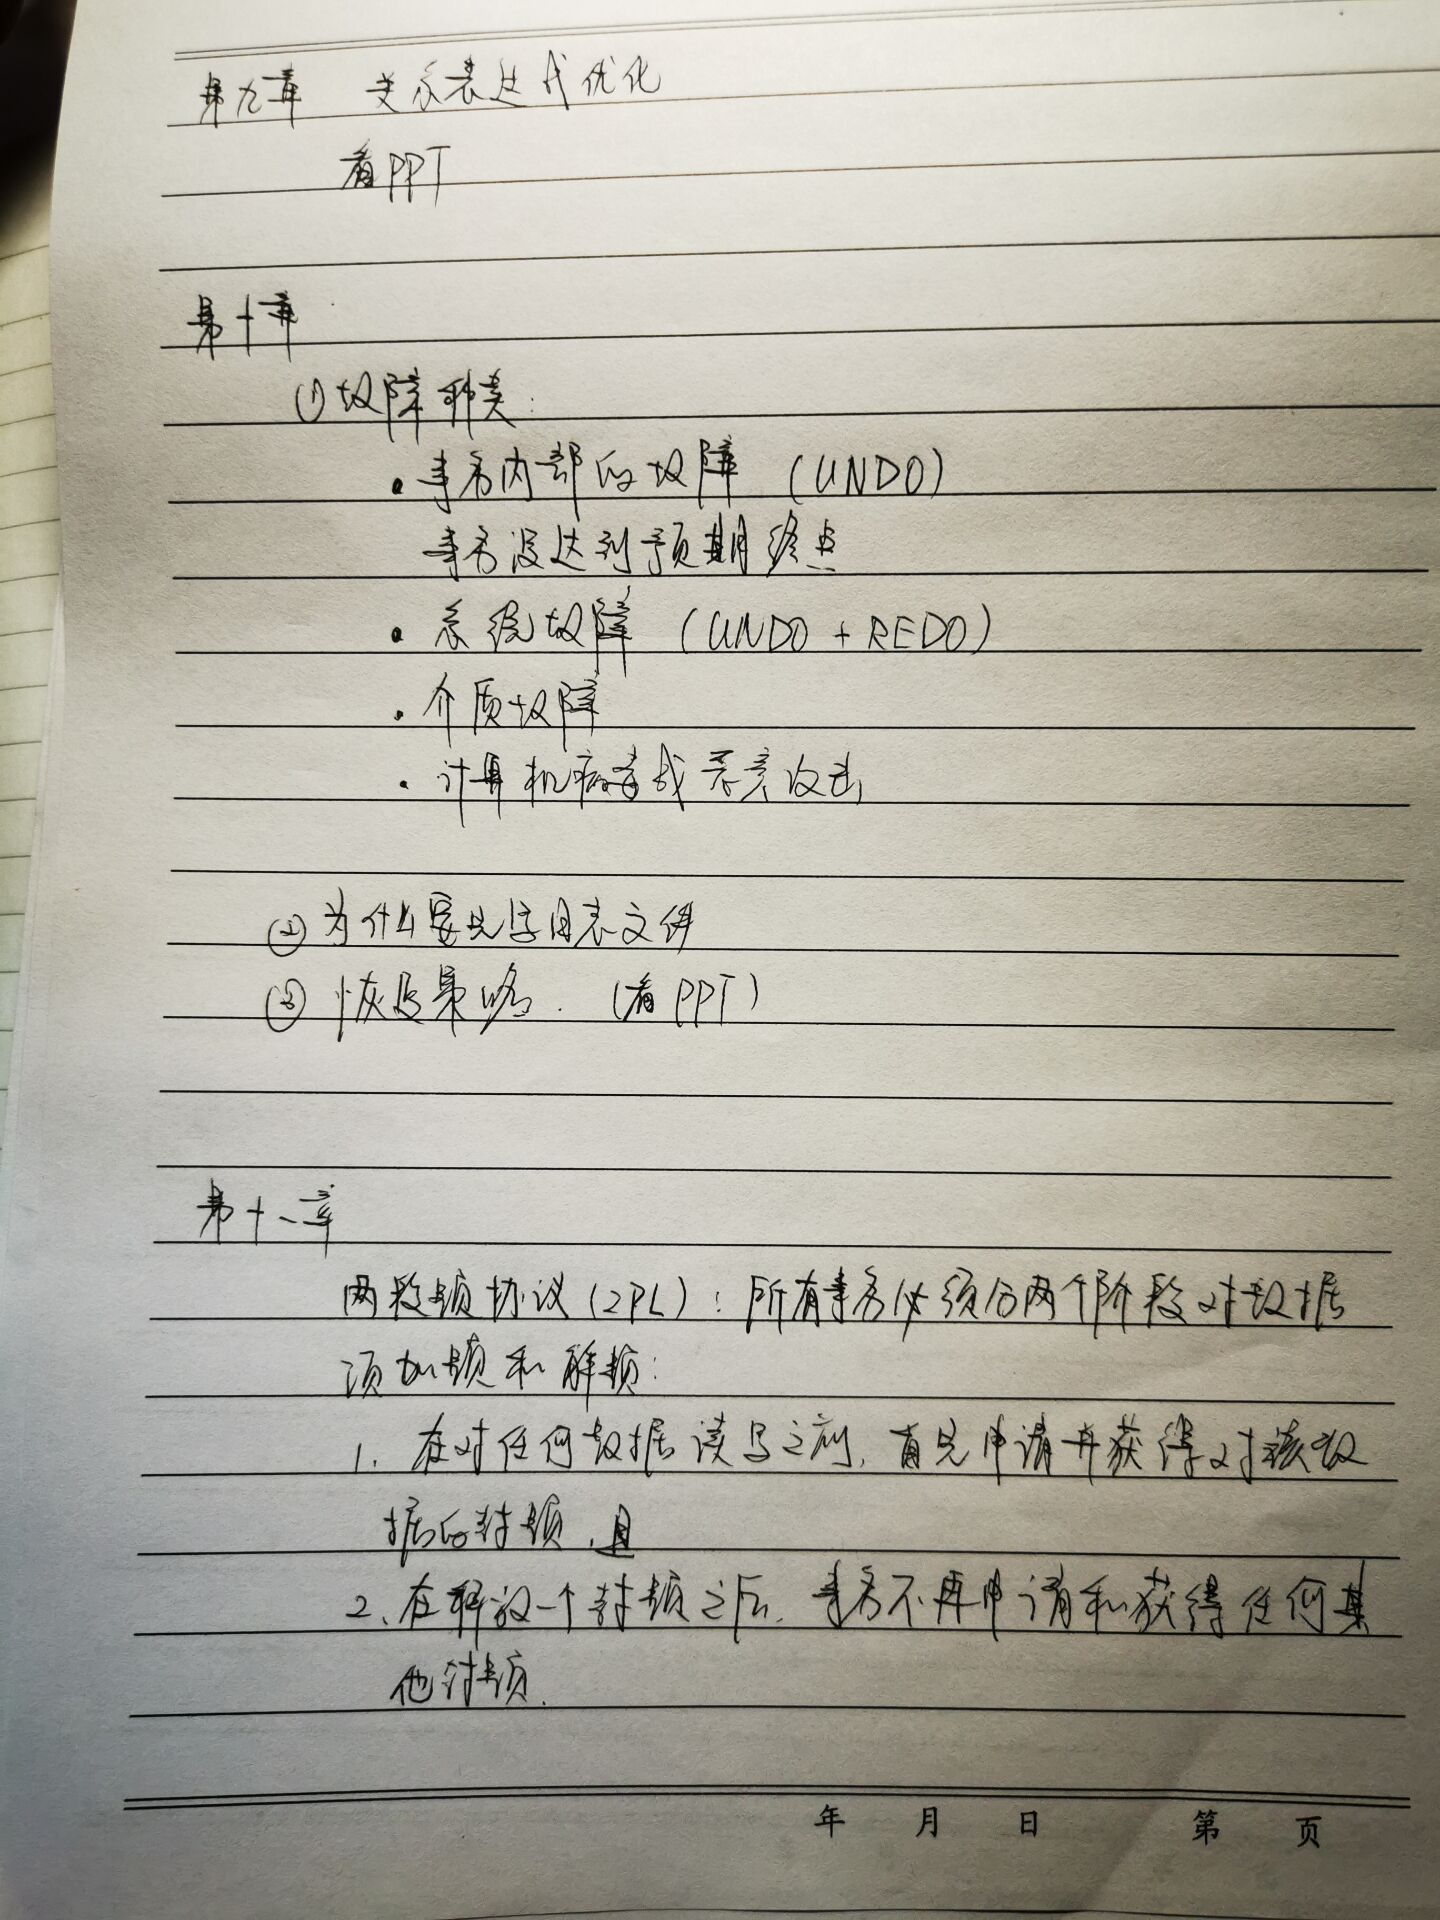 第九章 关系表达式优化
看PPT
第十章
① 故障种类:
• 事务内部的故障 (UNDO)
事务没达到预期终点
• 系统故障 (UNDO + REDO)
• 介质故障
• 计算机病毒或恶意攻击
② 为什么要先写日志文件
③ 恢复策略. (看PPT)
第十一章
两段锁协议(2PL): 所有事务必须分两个阶段对数据
项加锁和解锁:
1. 在对任何数据读写之前, 首先申请并获得对该数
据的封锁, 且
2. 在释放一个封锁之后, 事务不再申请和获得任何其
他封锁.
年 月 日 第 页